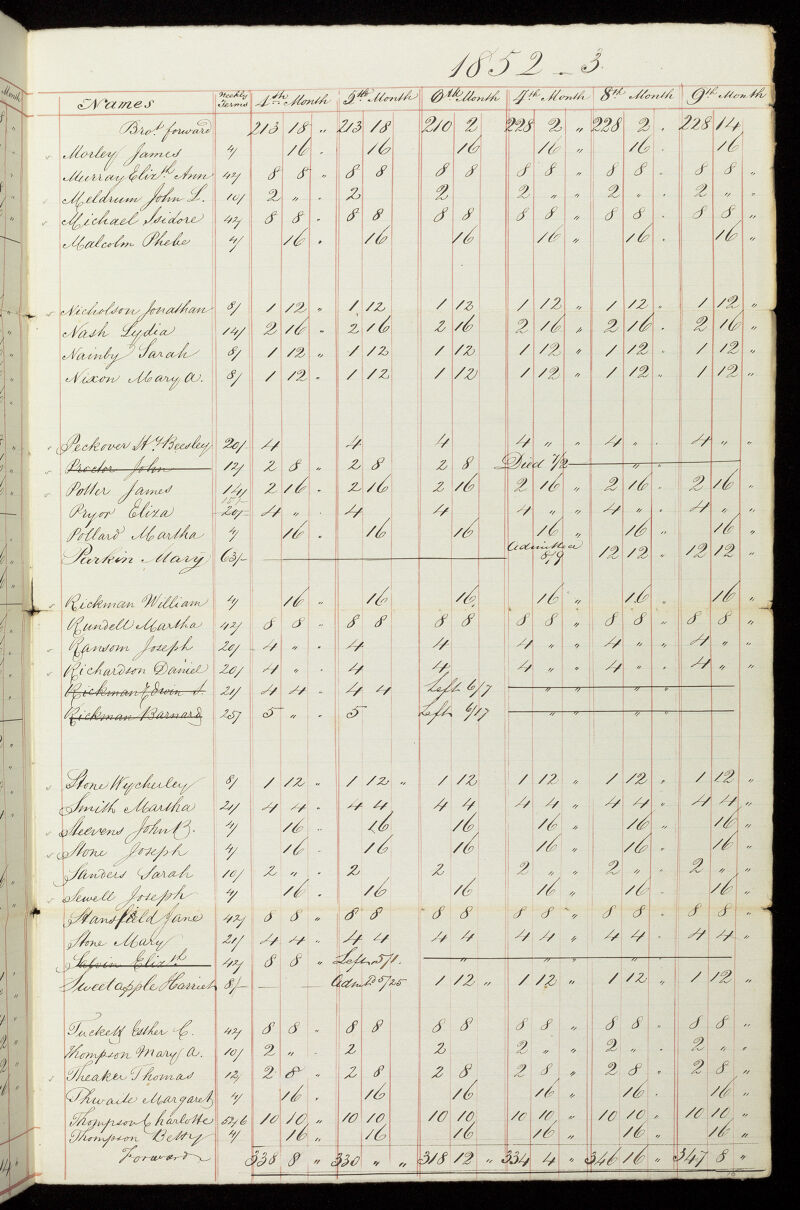 1852 - 3.
Names Weekly Terms 4th Month 5th Month 6th Month 7th Month 8th Month 9th Month
Brot. forward 213 18 " 213 18 210 2 228 2 " 228 2 . 228 14
Morley James 4/ 16 . 16 16 16 " 16 . 16
Murray Elizth. Ann 42/ 8 8 " 8 8 8 8 8 8 " 8 8 . 8 8 "
Meldrum John L. 10/ 2 " . 2 2 2 " " 2 " . 2 " "
Michael Isidore 42/ 8 8 . 8 8 8 8 8 8 " 8 8 . 8 8 "
Malcolm Phebe 4/ 16 . 16 16 16 " 16 . 16 "
Nicholson Jonathan 8/ 1 12 " 1 12 1 12 1 12 " 1 12 . 1 12 "
Nash Lydia 14/ 2 16 " 2 16 2 16 2 16 " 2 16 . 2 16 "
Nainby Sarah 8/ 1 12 " 1 12 1 12 1 12 " 1 12 . 1 12 "
Nixon Mary A. 8/ 1 12 . 1 12 1 12 1 12 " 1 12 " 1 12 "
Peckover Hy. Beesley 20/- 4 4 4 4 " " 4 " . 4 " "
Proctor John 12/ 2 8 " 2 8 2 8 Died 7/2 "
Potter James 14/ 2 16 . 2 16 2 16 2 16 " 2 16 . 2 16 "
15/-
Pryor Eliza 20/- 4 " . 4 4 4 " " 4 " . 4 " "
Pollard Martha 4/ 16 . 16 16 16 " 16 " 16 "
Parkin Mary 63/- Admitted 8/9 12 12 " 12 12 "
Rickman William 4/ 16 " 16 16 16 " 16 . 16 "
Rundell Martha 42/ 8 8 . 8 8 8 8 8 8 " 8 8 " 8 8 "
Ransom Joseph 20/- 4 " . 4 4 4 " " 4 " " 4 " "
Richardson Daniel 20/ 4 " . 4 4 4 " " 4 " . 4 " "
Rickman Edwin S. 21/ 4 4 . 4 4 Left 6/7 " " " "
Rickman Barnard 25/ 5 " . 5 Left 6/17 " " " "
Stone Wycherley 8/ 1 12 " 1 12 " 1 12 1 12 " 1 12 " 1 12 "
Smith Martha 21/ 4 4 . 4 4 4 4 4 4 " 4 4 . 4 4 "
Steevens John B. 4/ 16 . 16 16 16 " 16 " 16 "
Stone Joseph 4/ 16 . 16 16 16 " 16 . 16 "
Sanders Sarah 10/ 2 " . 2 2 2 " " 2 " . 2 " "
Sewell Joseph 4/ 16 . 16 16 16 " 16 . 16 "
Stansfield Jane 42/ 8 8 " 8 8 8 8 8 8 " 8 8 " 8 8 "
Stone Mary 21/ 4 4 " 4 4 4 4 4 4 " 4 4 . 4 4 "
Salvin Elizth 42/ 8 8 " Left 5/1. " " " " "
Sweetapple Harriet 8/- Admitd 5/25 1 12 " 1 12 " 1 12 " 1 12 "
Tuckett Esther C. 42/ 8 8 " 8 8 8 8 8 8 " 8 8 . 8 8 "
Thompson Mary A. 10/ 2 " . 2 2 2 " " 2 " . 2 " "
Theaker Thomas 12/ 2 8 " 2 8 2 8 2 8 " 2 8 . 2 8 "
Thwaite Margaret 4/ 16 . 16 16 16 " 16 . 16 "
Thompson Charlotte 52/6 10 10 " 10 10 10 10 10 10 " 10 10 " 10 10 "
Thompson Betty 4/ 16 " 16 16 16 " 16 " 16 "
Forward 338 8 " 330 " " 318 12 " 334 4 " 346 16 " 347 8 "